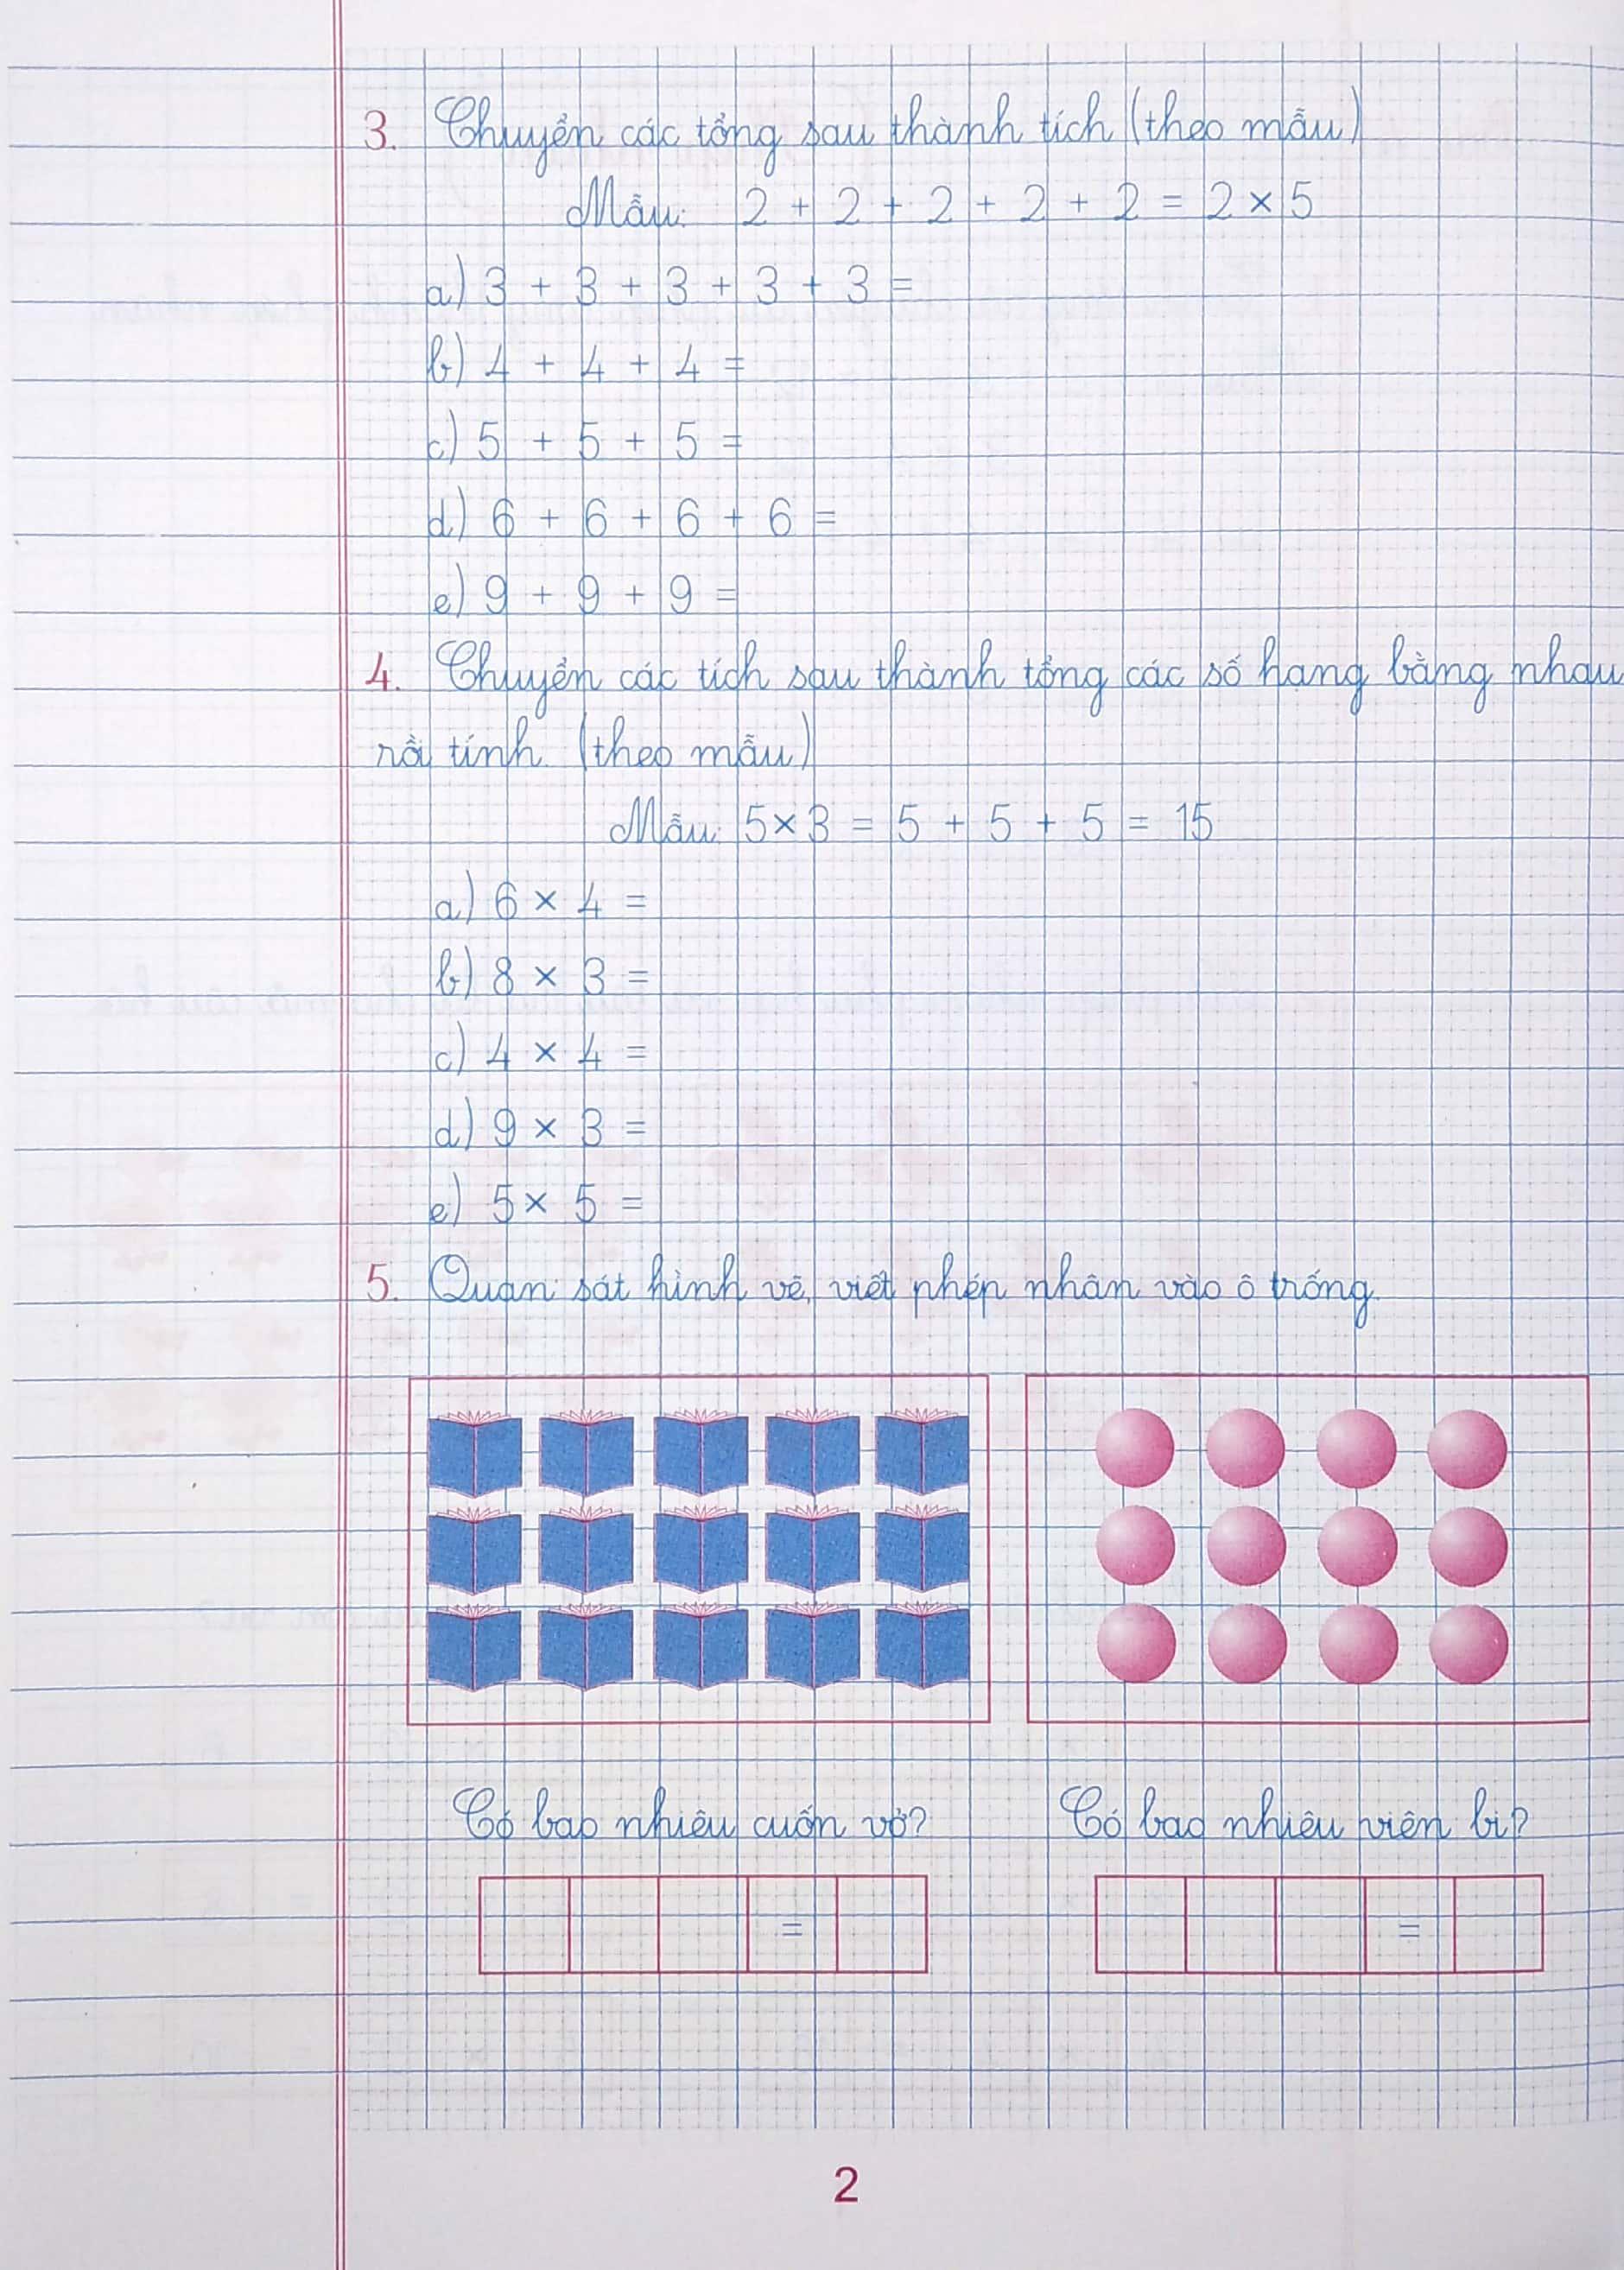 3. Chuyển các tổng sau thành tích (theo mẫu)
Mẫu: 2 + 2 + 2 + 2 + 2 = 2 × 5
a) 3 + 3 + 3 + 3 + 3 =
b) 4 + 4 + 4 =
c) 5 + 5 + 5 =
d) 6 + 6 + 6 + 6 =
e) 9 + 9 + 9 =
4. Chuyển các tích sau thành tổng các số hạng bằng nhau
rồi tính. (theo mẫu)
Mẫu: 5 × 3 = 5 + 5 + 5 = 15
a) 6 × 4 =
b) 8 × 3 =
c) 4 × 4 =
d) 9 × 3 =
e) 5 × 5 =
5. Quan sát hình vẽ, viết phép nhân vào ô trống.
Có bao nhiêu cuốn vở? Có bao nhiêu viên bi?
= =
2